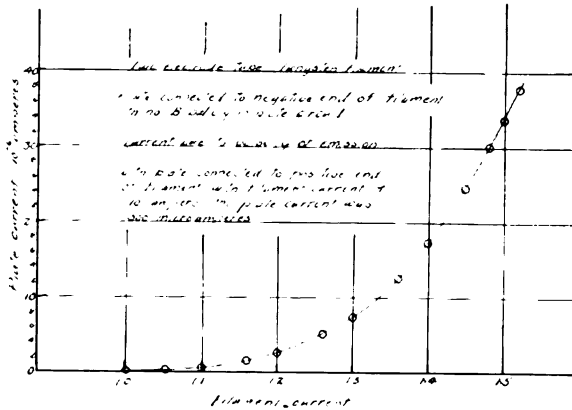 two electrode tube tungsten filament
plate connected to negative end of filament
no B battery in plate circuit
current due to velocity of emission
with plate connected to positive end
of filament with filament current of
amperes the plate current was
microamperes
Plate current 10⁻⁶ amperes
40
30
20
10
0
1.0 1.1 1.2 1.3 1.4 1.5
Filament current